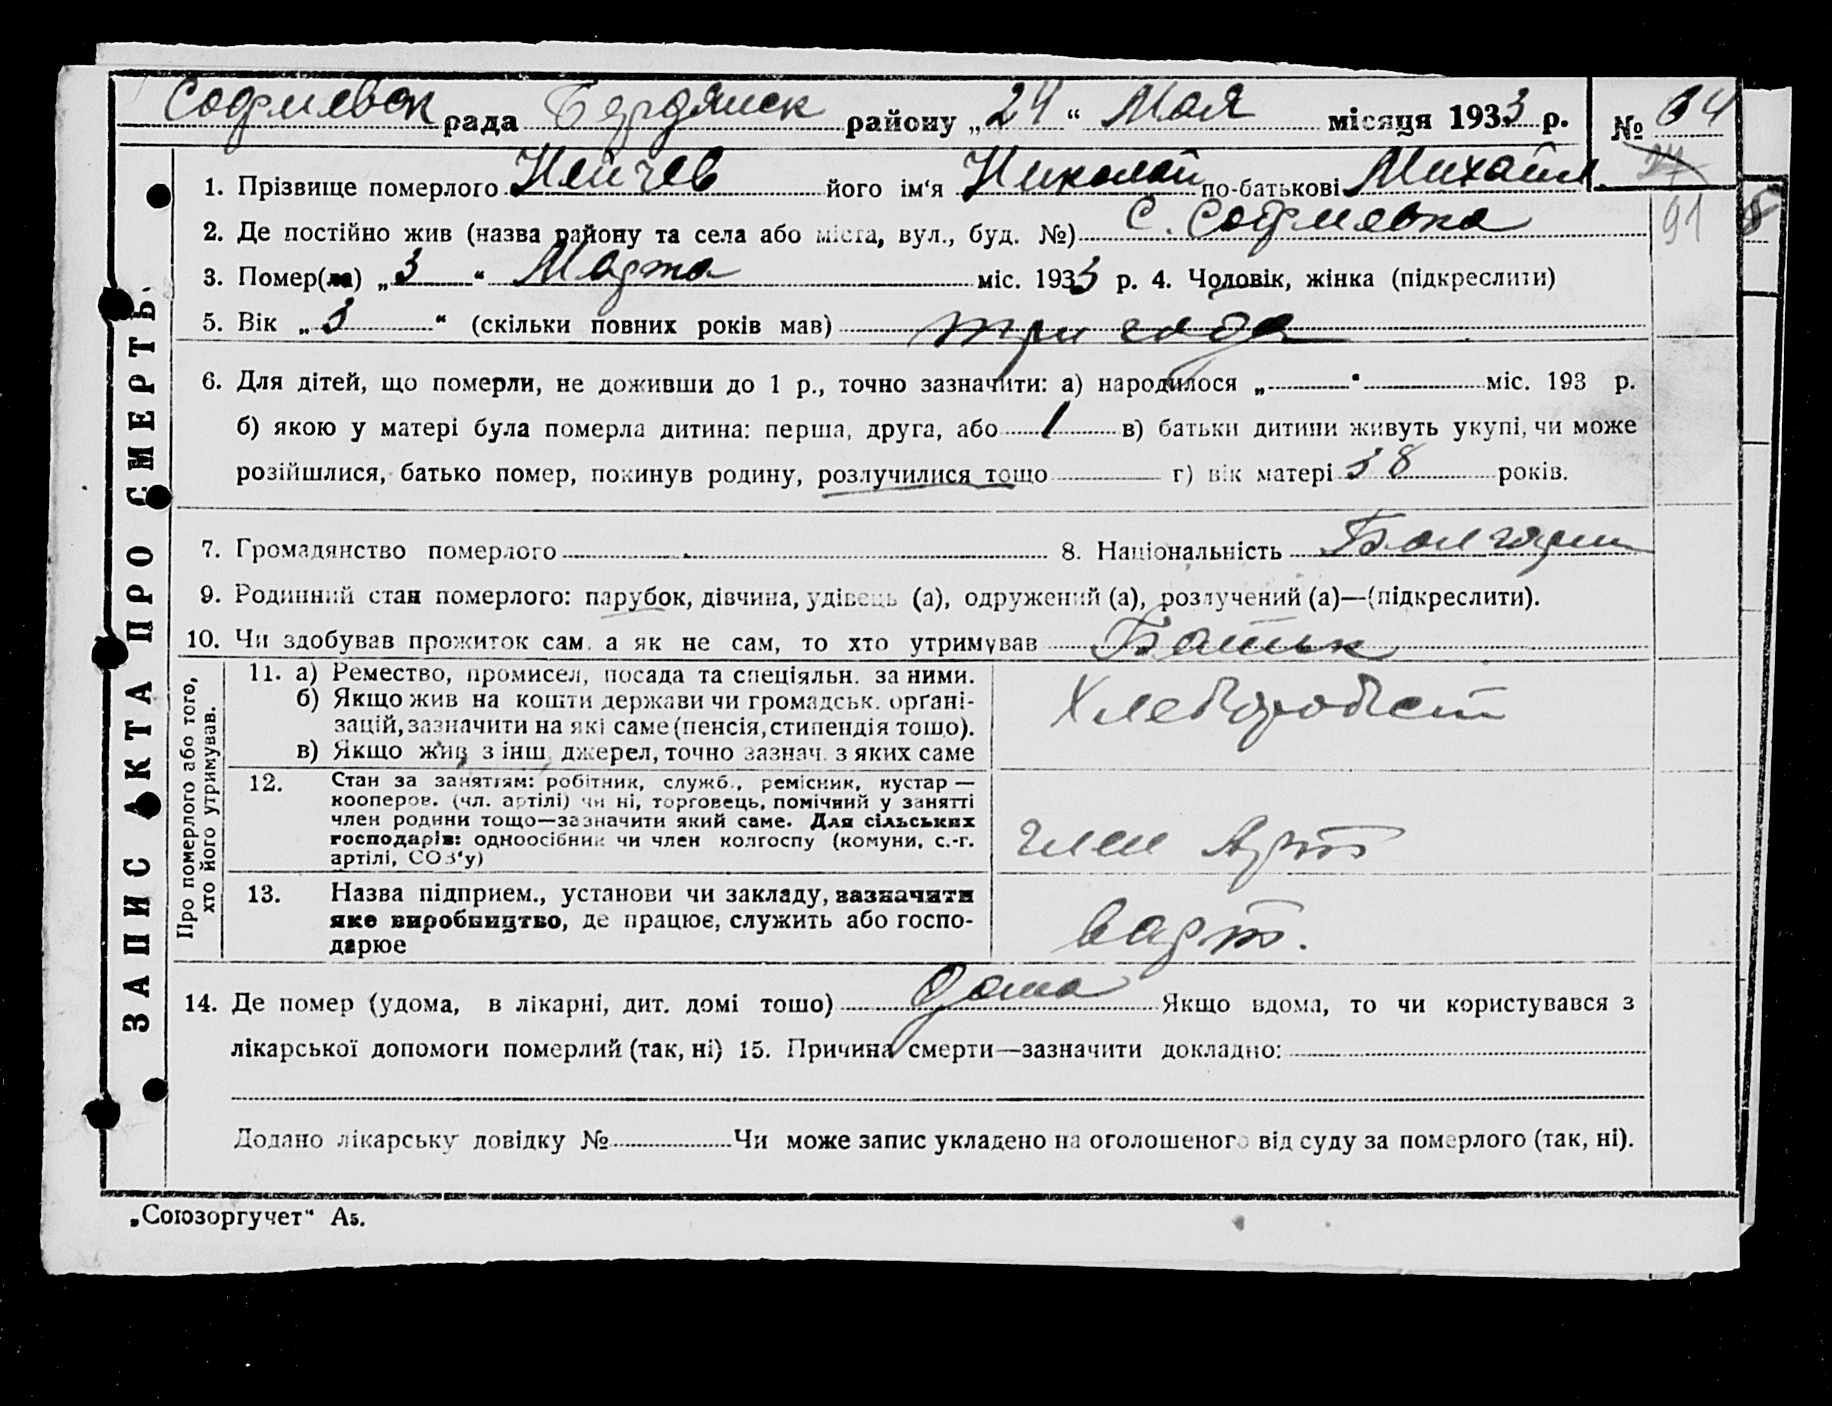 Софиевск рада Бердянск району „24“ Мая місяця 1933 р. № 64
1. Прізвище померлого Нейчев його ім‘я Николай по-батькові Михайл.
91
8
2. Де постійно жив (назва району та села або міста, вул., буд. №) с. Софиевка
3. Помер(ла) „3“ Марта міс. 1933 р. 4. Чоловік, жінка (підкреслити)
5. Вік „3“ (скільки повних років мав) три года
6. Для дітей, що померли, не доживши до 1 р., точно зазначити: а) народилося „ “ міс. 193 р.
б) якою у матері була померла дитина: перша, друга, або 1 в) батьки дитини живуть укупі, чи може
розійшлися, батько помер, покинув родину, розлучилися тощо г) вік матері 38 років.
7. Громадянство померлого 8. Національність Болгарин
9. Родинний стан померлого: парубок, дівчина, удівець (а), одружений (а), розлучений (а)—(підкреслити).
10. Чи здобував прожиток сам, а як не сам, то хто утримував Батьк
ЗАПИС АКТА ПРО СМЕРТЬ
Про померлого або того,
хто його утримував.
11. а) Ремество, промисел, посада та спеціяльн. за ними.
б) Якщо жив на кошти держави чи громадськ. орґані-
зацій, зазначити на які саме (пенсія, стипендія тошо).
в) Якщо жив з інш. джерел, точно зазнач. з яких саме
12. Стан за заняттям: робітник, служб., ремісник, кустар —
кооперов. (чл. артілі) чи ні, торговець, помічний у занятті
член родини тощо—зазначити який саме. Для сільських
господарів: одноосібник чи член колгоспу (комуни, с.-г.
артілі, СОЗ‘у)
член Арт
13. Назва підприєм., установи чи закладу, зазначити
яке виробництво, де працює, служить або госпо-
дарює
варт.
14. Де помер (удома, в лікарні, дит. домі тошо) дома Якщо вдома, то чи користувався з
лікарської допомоги померлий (так, ні) 15. Причина смерти—зазначити докладно:
Додано лікарську довідку № Чи може запис укладено на оголошеного від суду за померлого (так, ні).
„Союзоргучет“ А5.